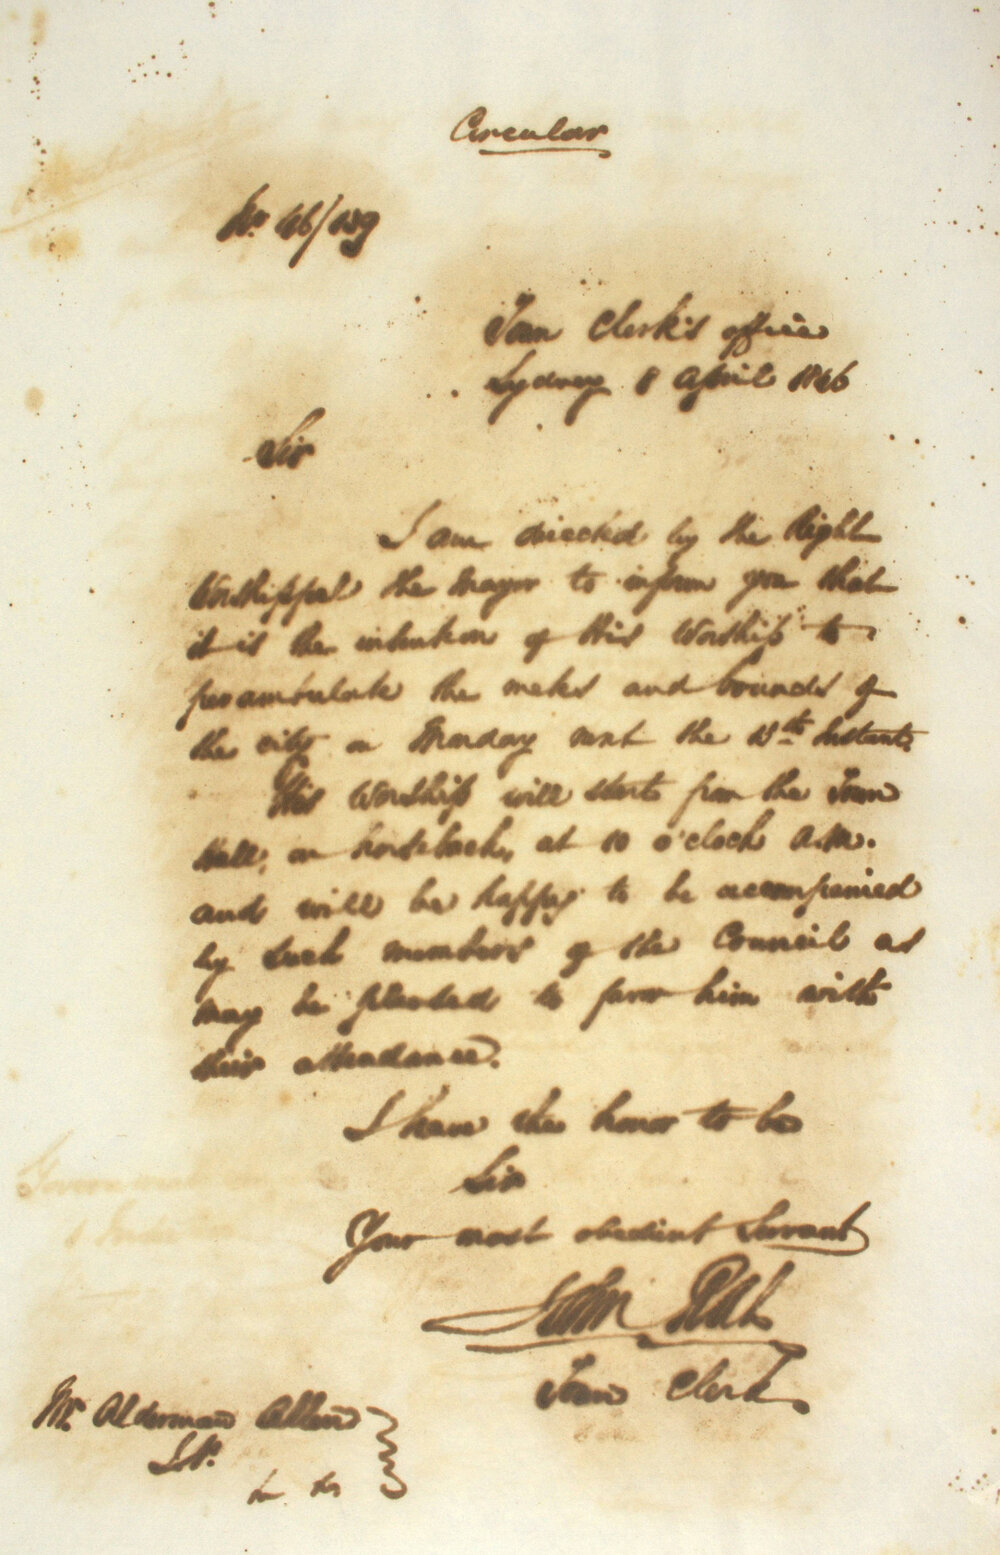 Circular
No. 46/159
Town Clerk's office
Sydney 8 April 1846
Sir
I am directed by the Right
Worshipful the Mayor to inform you that
it is the intention of His Worship to
perambulate the metes and bounds of
the city on Monday next the 13th Instant.
His Worship will start from the Town
Hall, on horseback, at 10 o'clock A.M.
and will be happy to be accompanied
by such members of the Council as
may be pleased to favor him with
their attendance.
I have the honor to be
Sir
Your most obedient Servant
John
Town Clerk
Mr. Alderman Allen